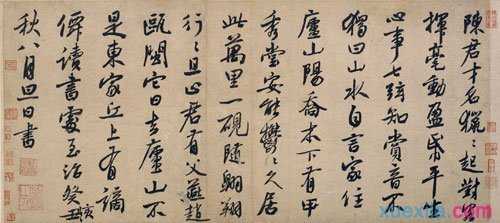 陳君才名獵獵起對客
揮毫動盈紙平生
心事七弦知賞音不
獨田山水自言家住
廬山陽喬木下有甲
秀堂安能鬱鬱久居
此萬里一硯隨翱翔
行行且止君有父燕趙
甌閩它日去廬山不
是東家丘上有謫
僊讀書處至治癸亥
秋八月旦日書